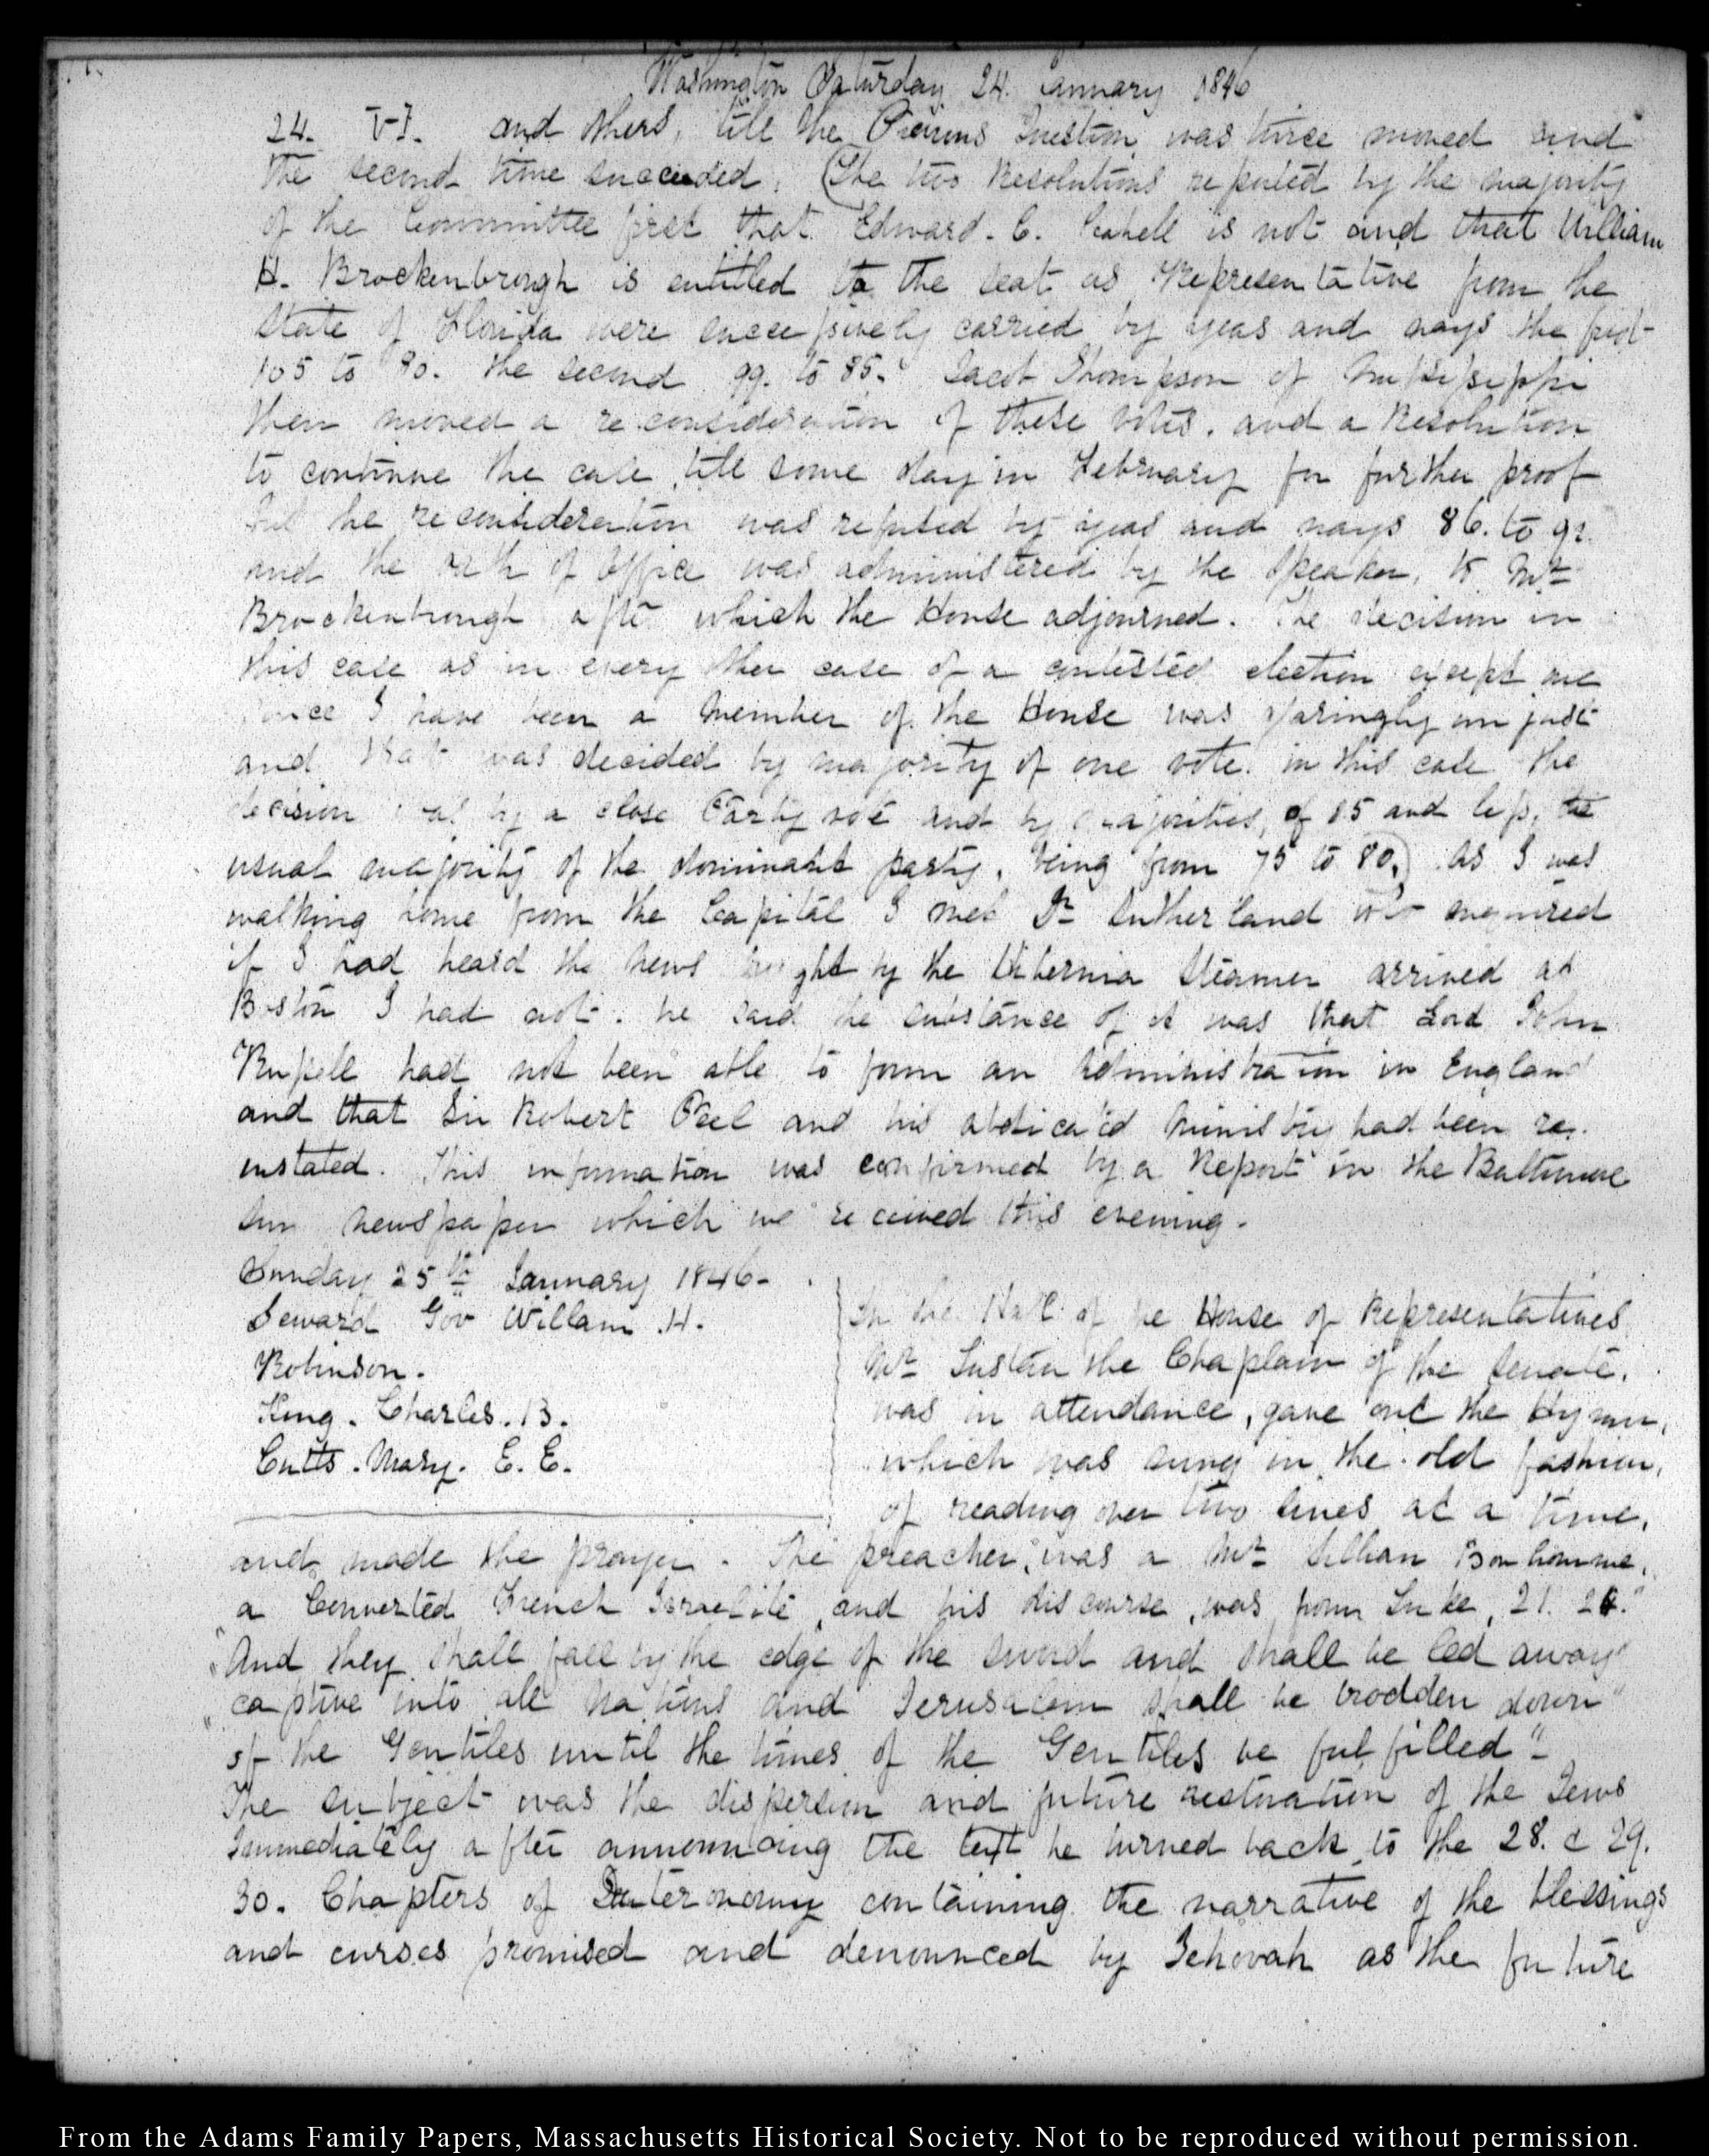 Washington Saturday 24. January 1846
24. VI. and others, till the Previous Question was twice moved and
the second time succeeded. (The two Resolutions reported by the majority
of the Committee first that Edward. C. Cabell is not and that William
H. Brockenbrough is entitled to the seat as Representative from the
State of Florida were successively carried by yeas and nays the first
105 to 80. the second 99. to 85. Jacob Thompson of Mississippi
then moved a reconsideration of these votes. and a Resolution
to continue the case till some day in February for further proof
but the reconsideration was refused by yeas and nays 86. to
and the oath of office was administered by the Speaker, to Mr
Brockenbrough after which the House adjourned. The decision in
this case as in every other case of a contested election except one
since I have been a member of the House was glaringly unjust
and that was decided by majority of one vote. in this case the
decision was by a close Party vote and by majorities, of 15 and less, the
usual majority of the dominant party, being from 75 to 80.) As I was
walking home from the Capitol I met Dr Sutherland who enquired
if I had heard the news brought by the Hibernia Steamer arrived at
Boston I had not. he said the substance of it was that Lord John
Russell had not been able to form an administration in England
and that Sir Robert Peel and his abdicated ministry had been re-
instated. This information was confirmed by a Report in the Baltimore
Sun newspaper which we received this evening.
Sunday 25th January 1846-
Seward Gov William .H.
Robinson.
King. Charles. B.
Cutts. Mary. E. E.
In the Hall of the House of Representatives
Mr Tustin the Chaplain of the Senate.
was in attendance, gave out the Hymn,
which was sung in the old fashion,
of reading over two lines at a time,
and made the prayer. The preacher, was a Mr Bonhomme,
a Converted French Israelite, and his discourse, was from Luke, 21. 24.
"And they shall fall by the edge of the sword and shall be led away
"captive into all nations and Jerusalem shall be trodden down"
of the Gentiles until the times of the Gentiles be fulfilled"-
The subject was the dispersion and future restoration of the Jews
Immediately after announcing the text he turned back to the 28. & 29.
30. Chapters of Deuteronomy containing the narrative of the blessings
and curses promised and denounced by Jehovah as the future
From the Adams Family Papers, Massachusetts Historical Society. Not to be reproduced without permission.